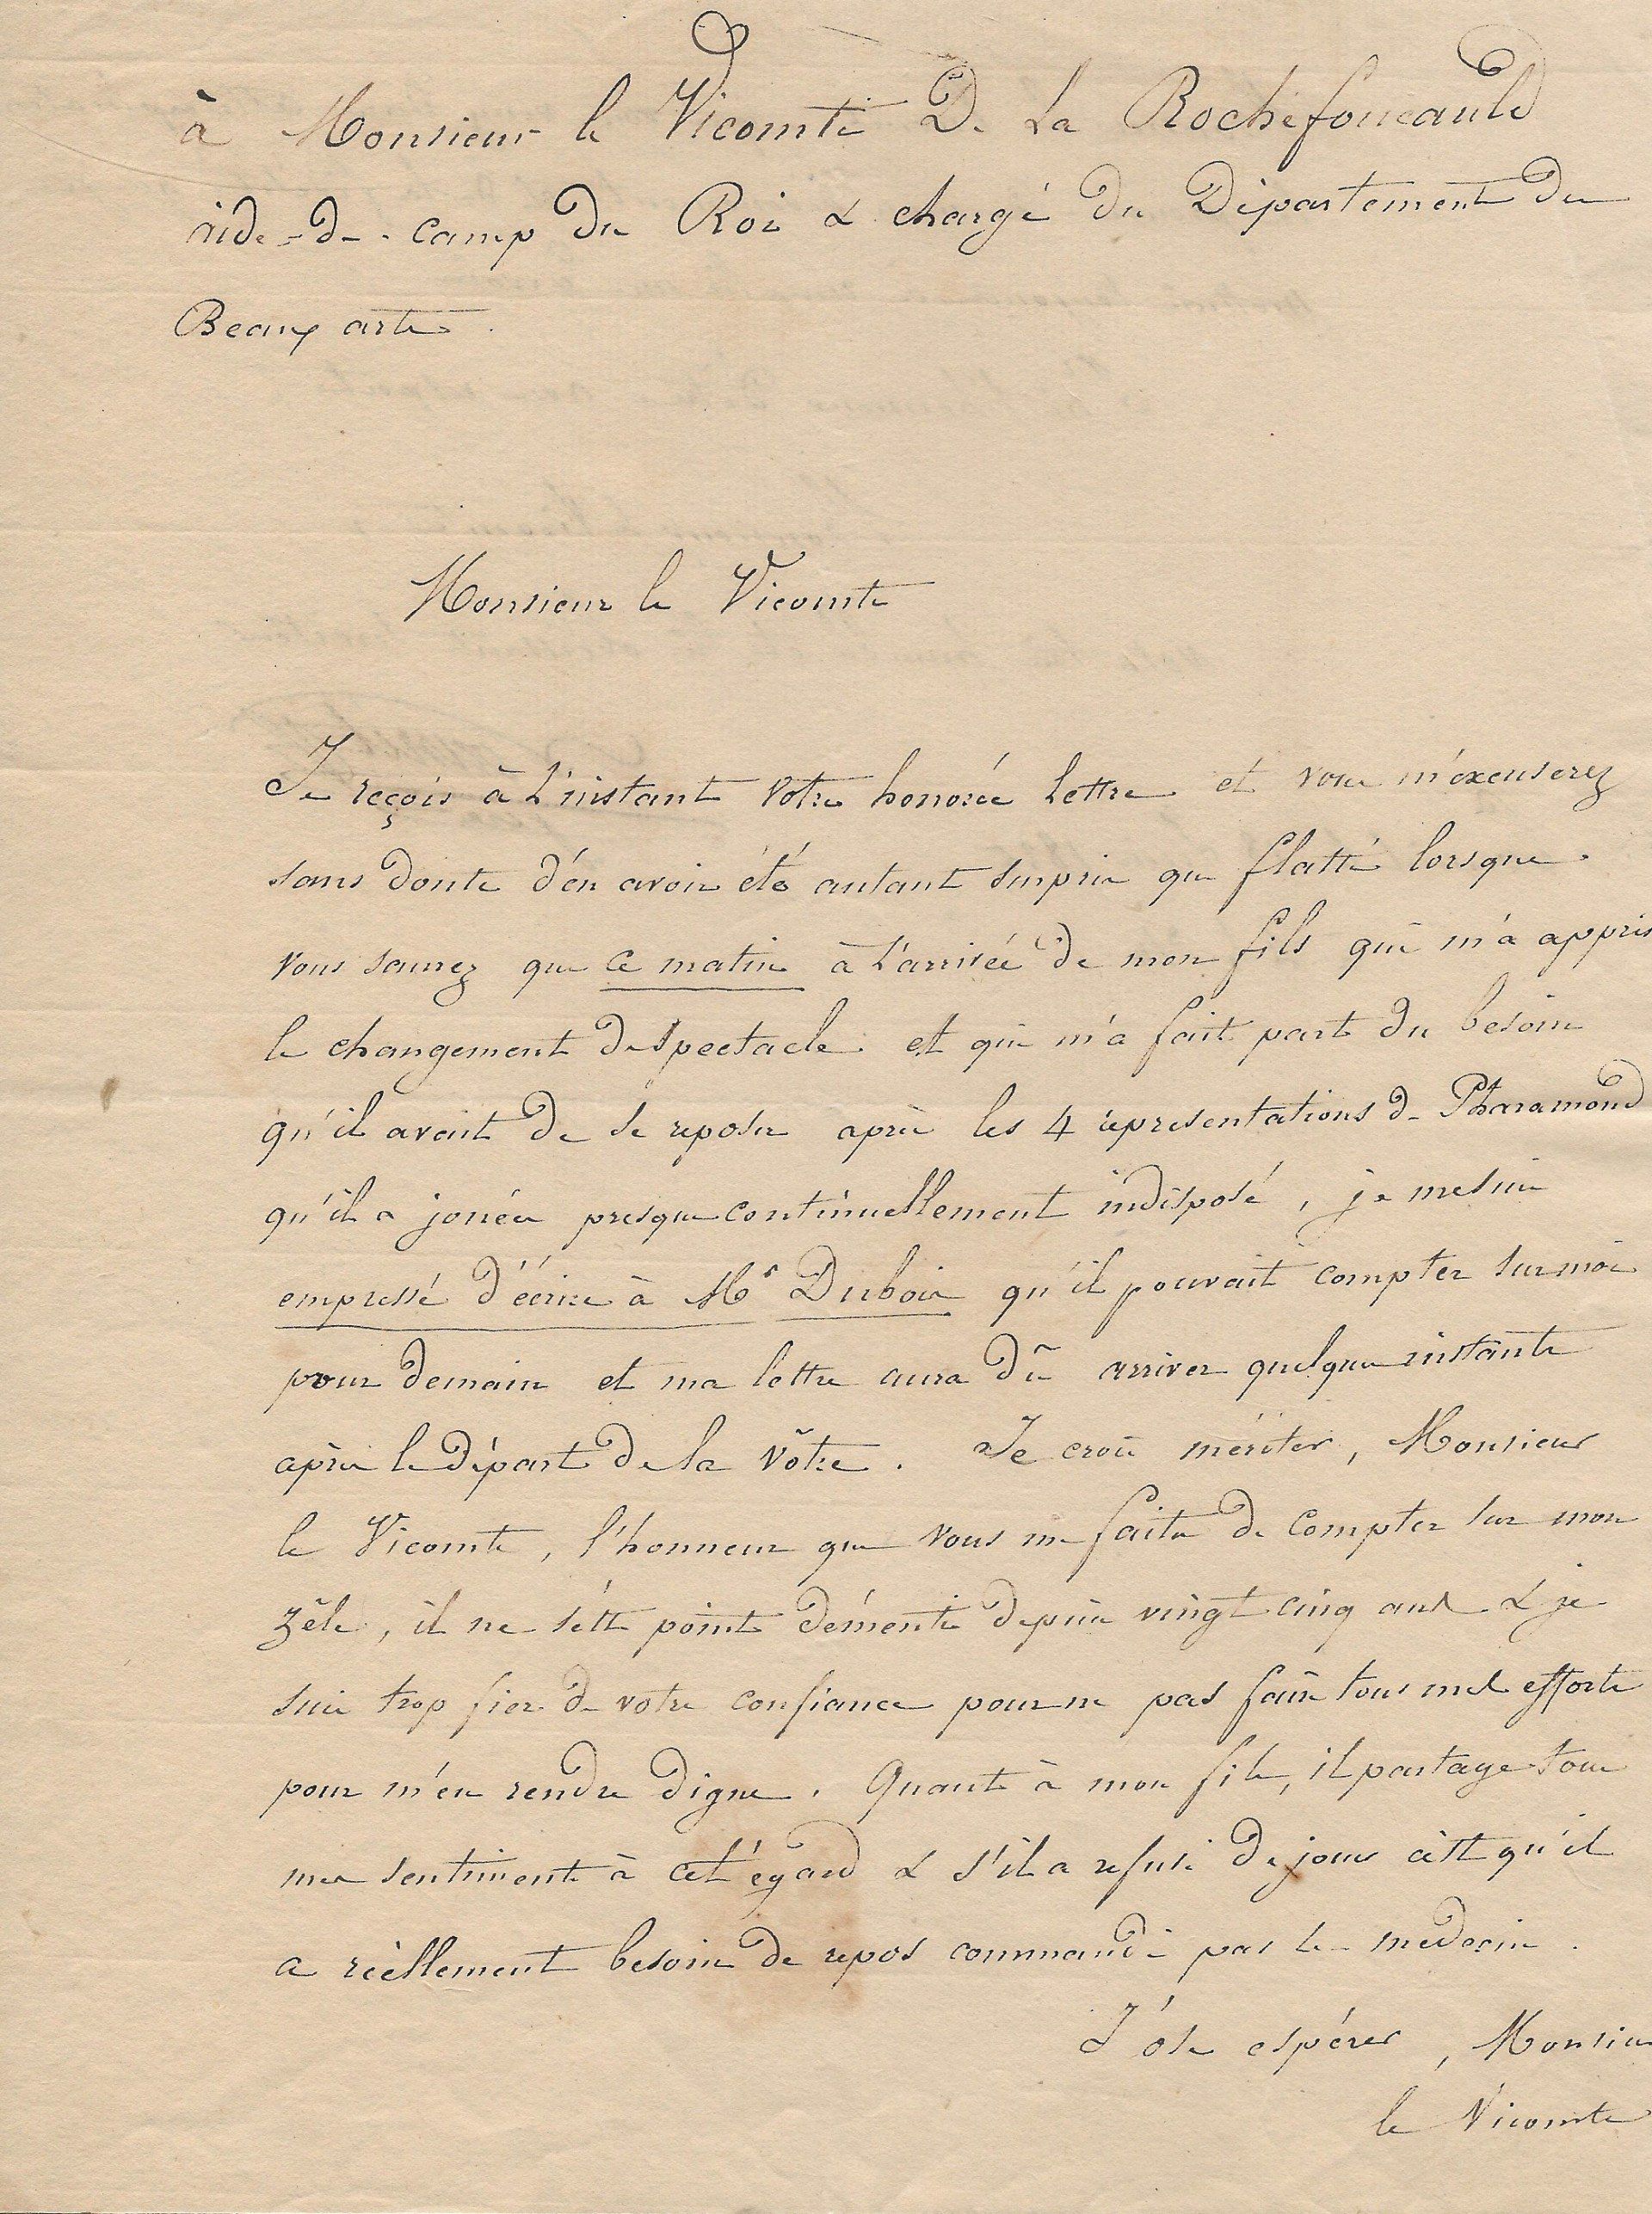 à Monsieur le Vicomte De La Rochefoucauld
aide-de-camp du Roi & chargé du Département des
Beaux arts.
Monsieur le Vicomte
Je reçois à L'instant votre honorée Lettre et vous m'excuserez
sans doute d'én avoir été autant surpris que flatté lorsque
vous saurez que ce matin à L'arrivée de mon fils qui m'a appris
le changement de spectacle et qui m'a fait part du besoin
qu'il avait de se reposer après les 4 représentations de Pharamond
qu'il a jouées presque continuellement indisposé, je me suis
empressé d'écrire à Mr Dubois qu'il pouvait compter sur moi
pour demain et ma lettre aura dû arriver quelques instants
après le Départ de la vôtre. Je crois mériter, Monsieur
le Vicomte, l'honneur que vous me faites de compter sur mon
zèle, il ne s'ést point démenti depuis vingt cinq ans & je
suis trop fier de votre confiance pour ne pas faire tous mes efforts
pour m'en rendre digne. Quant à mon fils, il partage tous
mes sentiments à cet égard & s'il a refusé de jouer c'est qu'il
a réellement besoin de repos commandé par le médecin.
J'ose espérer, Monsieur
le Vicomte